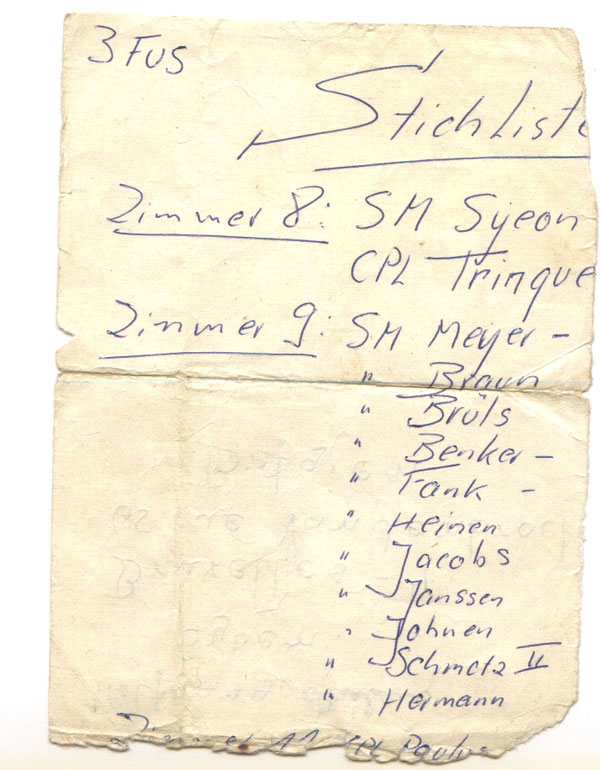 3 FUS
Stichliste
Zimmer 8: SM Syeon
CPL Trinque
Zimmer 9: SM Meyer -
" Braun
" Brüls
" Benker -
" Fank -
" Heinen
" Jacobs
" Janssen
" Johnen
" Schmetz II
" Hermann
Zimmer 11 CPL Paulus